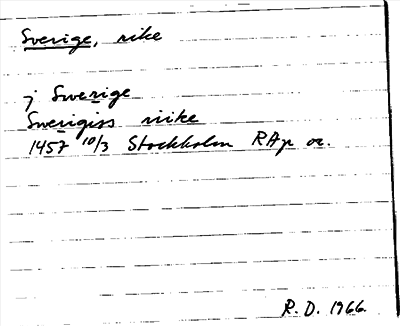 Sverige, rike
j Swerige
Swerigiss riike
1457 10/3 Stockholm RAp or.
R. D. 1966.